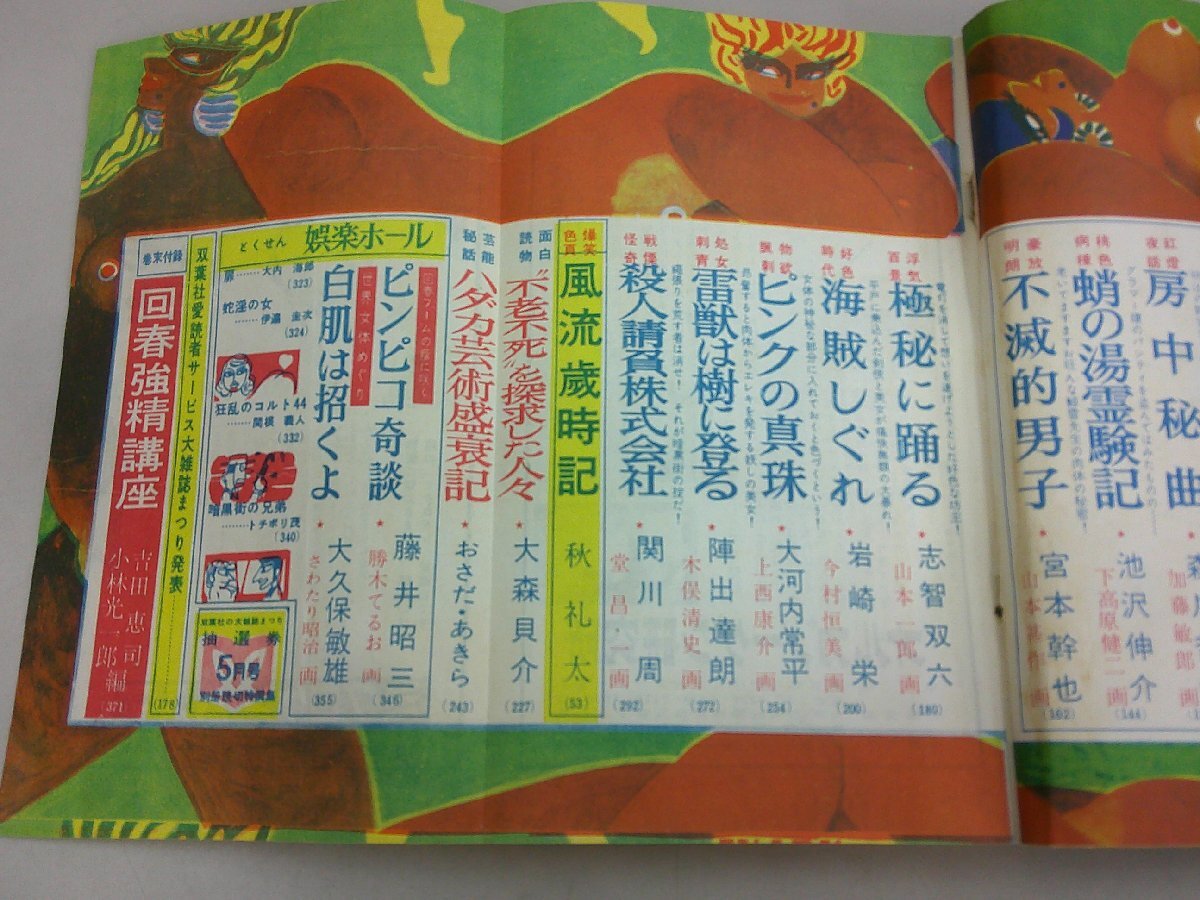 紅燈夜話
房中秘曲
加藤敏郎 画
桃色病種
蛸の湯霊験記
池沢伸介
下高原健二 画
(144)
豪放明朗
不滅的男子
宮本幹也
(162)
浮気百景
極秘に踊る
志智双六
山本一郎 画
(180)
好色時代
海賊しぐれ
岩崎栄
今村恒美 画
(200)
物欲異刺
ピンクの真珠
大河内常平
上西康介 画
(254)
処女刺青
雷獣は樹に登る
縄張りを荒す者は消せ! それが暗黒街の掟だ!
陣出達朗
木俣清史 画
(272)
戦慄怪奇
殺人請負株式会社
関川周
堂昌一 画
(292)
爆笑色頁
風流歳時記
秋礼太
(53)
面白読物
〝不老不死〟を探求した人々
大森貝介
(227)
芸能秘話
ハダカ芸術盛衰記
おさだ・あきら
(243)
とくせん 娯楽ホール
回春ブームの陰に咲く
ピンピコ奇談
藤井昭三
勝木てるお 画
(346)
世界女体めぐり
白肌は招くよ
大久保敏雄
さわたり昭治 画
(355)
扉………大内海郎
(323)
蛇淫の女
(324)
狂乱のコルト44
(332)
暗黒街の兄弟
………トチボリ茂
(340)
双葉社の大雑誌まつり
抽選券
5月号
別冊読切特撰集
双葉社愛読者サービス大雑誌まつり発表
(178)
巻末付録
回春強精講座
吉田恵司
小林光一郎編
(371)